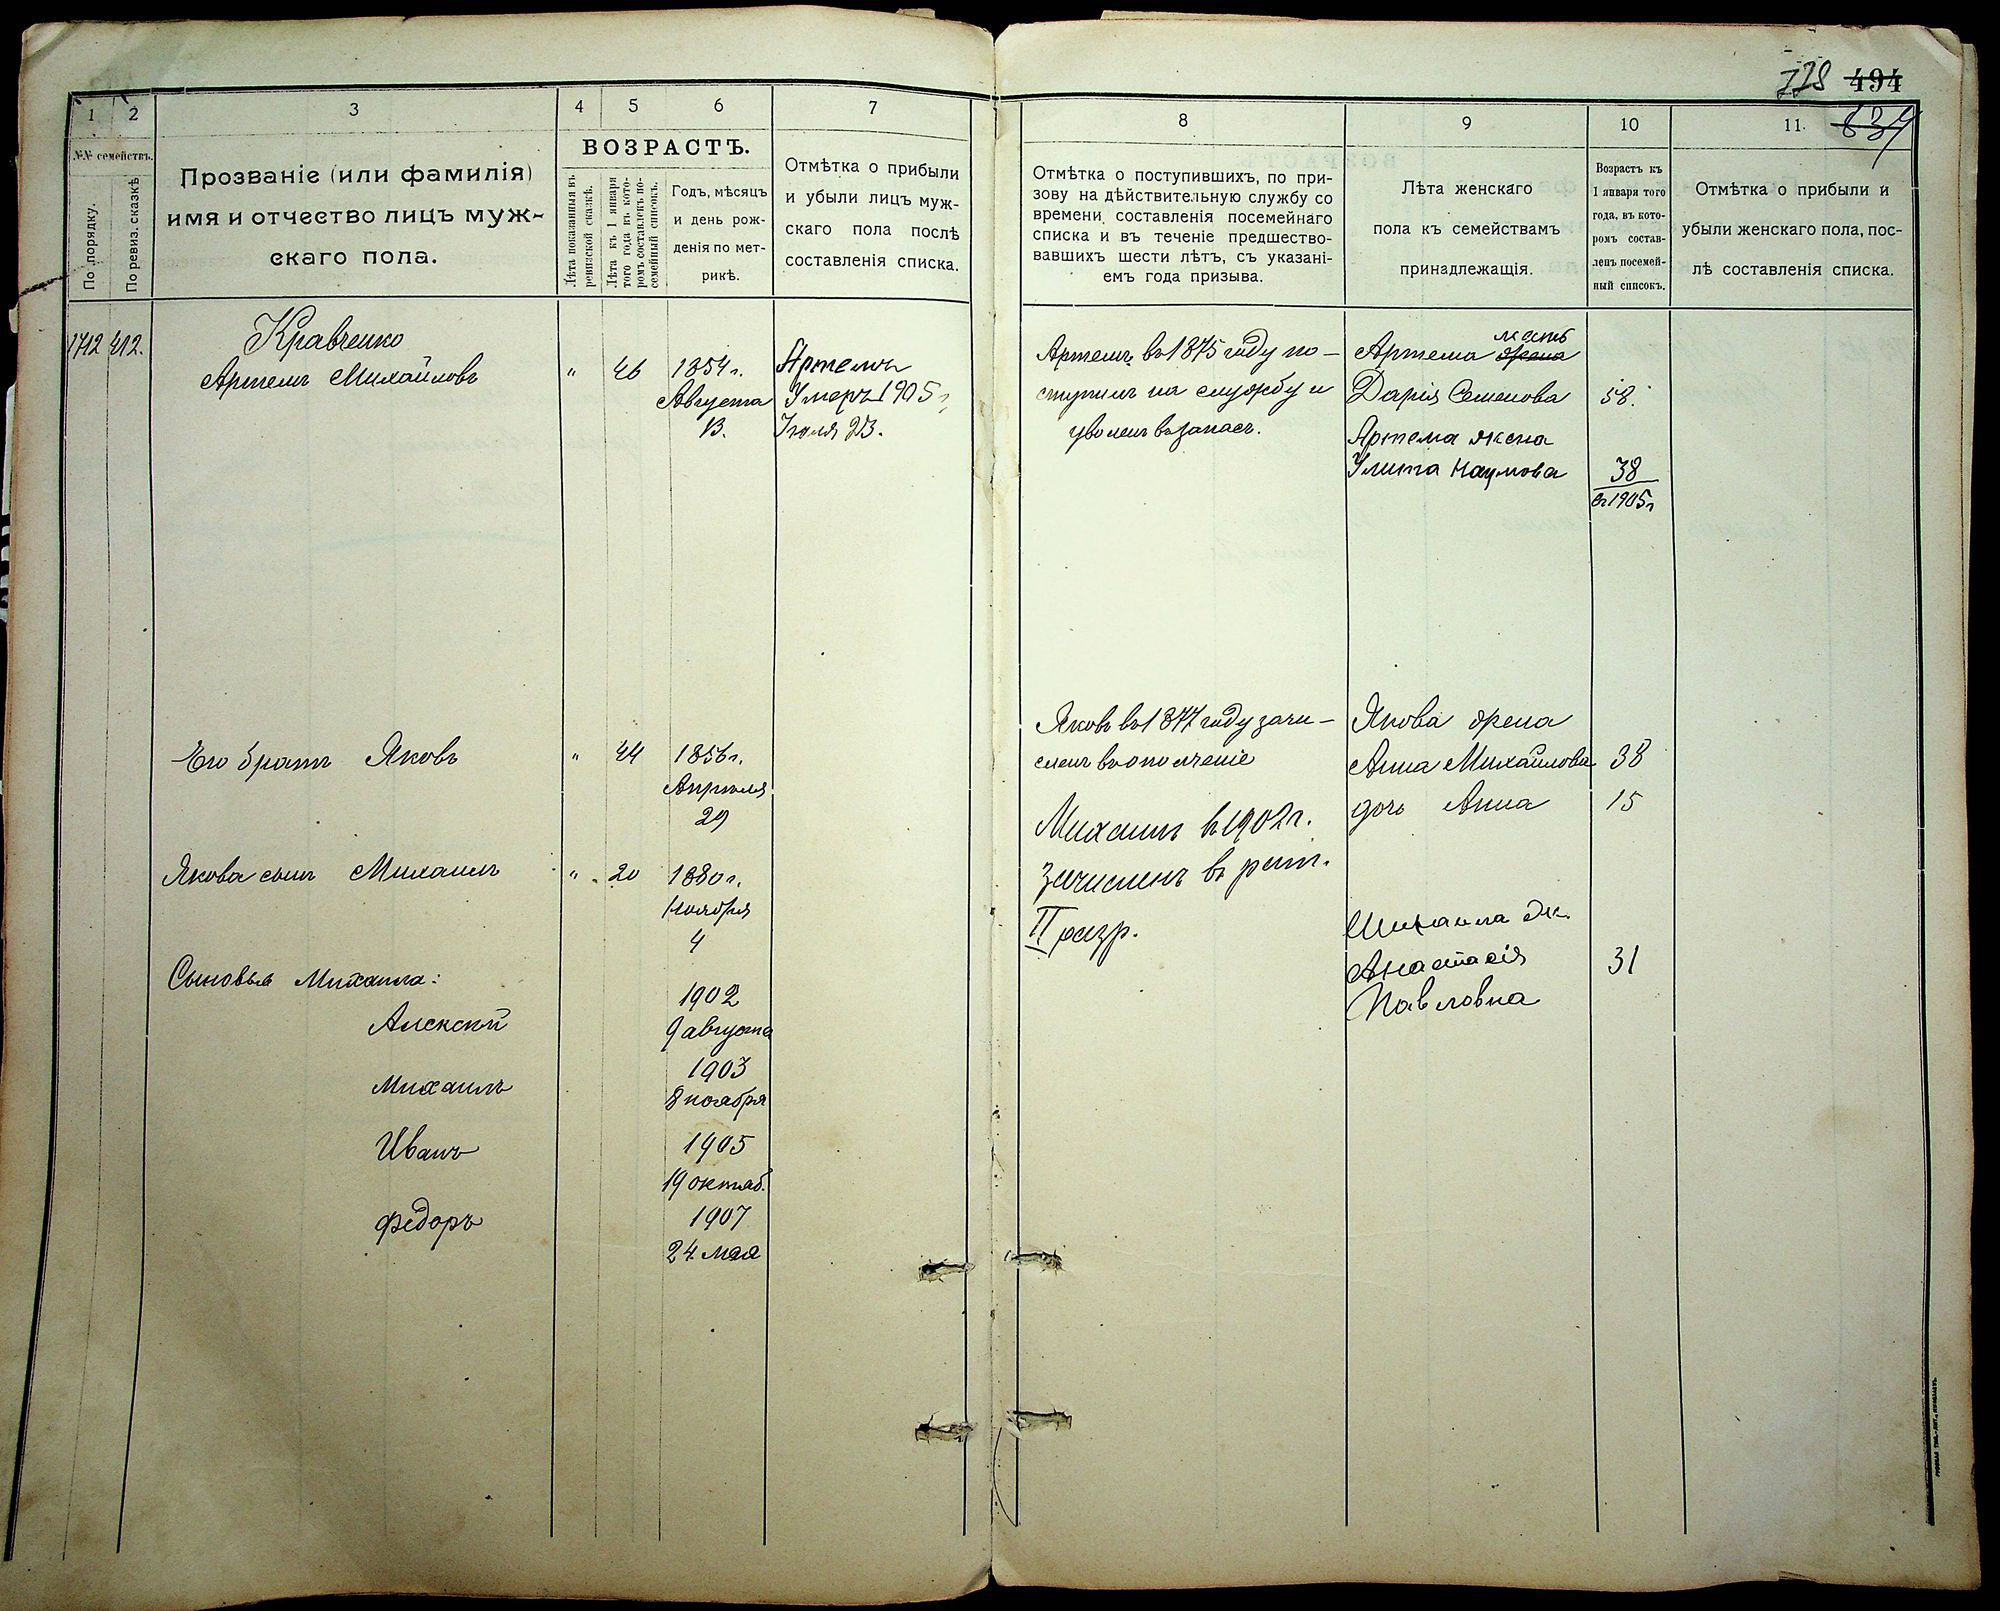 778 494
634
1 2 3 4 5 6 7
№№ семействъ.
По порядку.
По ревиз. сказкѣ
Прозваніе (или фамилія)
имя и отчество лицъ муж-
скаго пола.
ВОЗРАСТЪ.
Лѣта показанныя въ
ревизской сказкѣ.
Лѣта къ 1 января
того года въ кото-
ромъ составленъ по-
семейный списокъ.
Годъ, мѣсяцъ
и день рож-
денія по мет-
рикѣ.
Отмѣтка о прибыли
и убыли лицъ муж-
скаго пола послѣ
составленія списка.
1712 412.
Кравченко
Артемъ Михайловъ " 46 1854 г.
Августа
13.
Артемъ
Умеръ 1905 г.
Іюля 23.
Его братъ Яковъ " 44 1856 г.
Апрѣля
29
Якова сынъ Михаилъ " 20 1880 г.
Ноября
4
Сыновья Михаила:
Алексѣй 1902
9 августа
Михаилъ 1903
8 ноября
Иванъ 1905
19 октяб.
Федоръ 1907
24 мая
8 9 10 11.
Отмѣтка о поступившихъ, по при-
зову на дѣйствительную службу со
времени составленія посемейнаго
списка и въ теченіе предшество-
вавшихъ шести лѣтъ, съ указані-
емъ года призыва.
Лѣта женскаго
пола къ семействамъ
принадлежащія.
Возрастъ къ
1 января того
года, въ кото-
ромъ состав-
ленъ посемей-
ный списокъ.
Отмѣтка о прибыли и
убыли женскаго пола, пос-
лѣ составленія списка.
Артемъ въ 1875 году по-
ступилъ на службу и
уволенъ въ запасъ.
мать
Артема жена
Дарія Семенова 58.
Артема жена
Улита Наумова 38
въ 1905 г
Яковъ въ 1877 году зачи-
сленъ въ ополченіе
Якова жена
Анна Михайлова 38
дочь Анна 15
Михаилъ въ 1902 г.
зачисленъ въ рат.
II разр.
Михаила ж.
Анастасія 31
Павловна